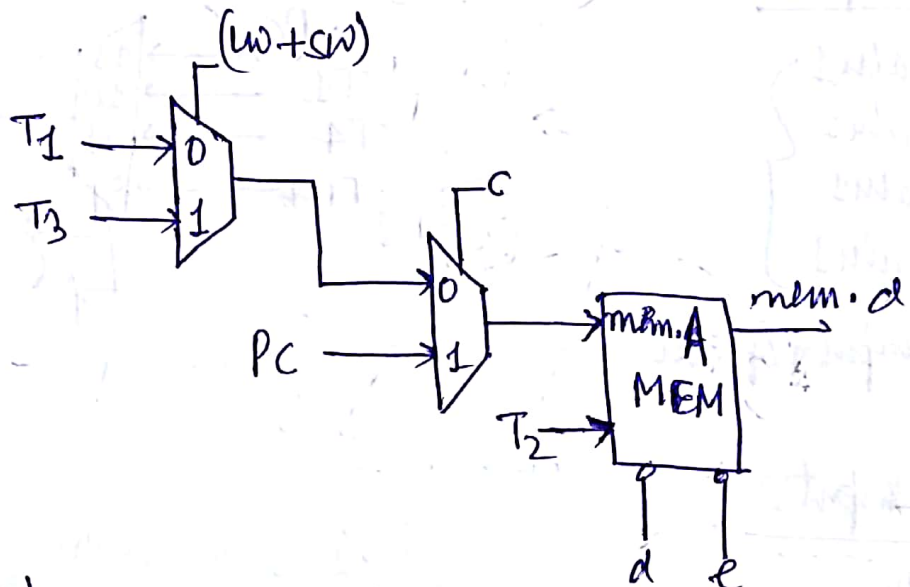 (LW+SW)
T1
0
T3
1
C
0
PC
1
mem.A
mem.d
MEM
T2
d
e